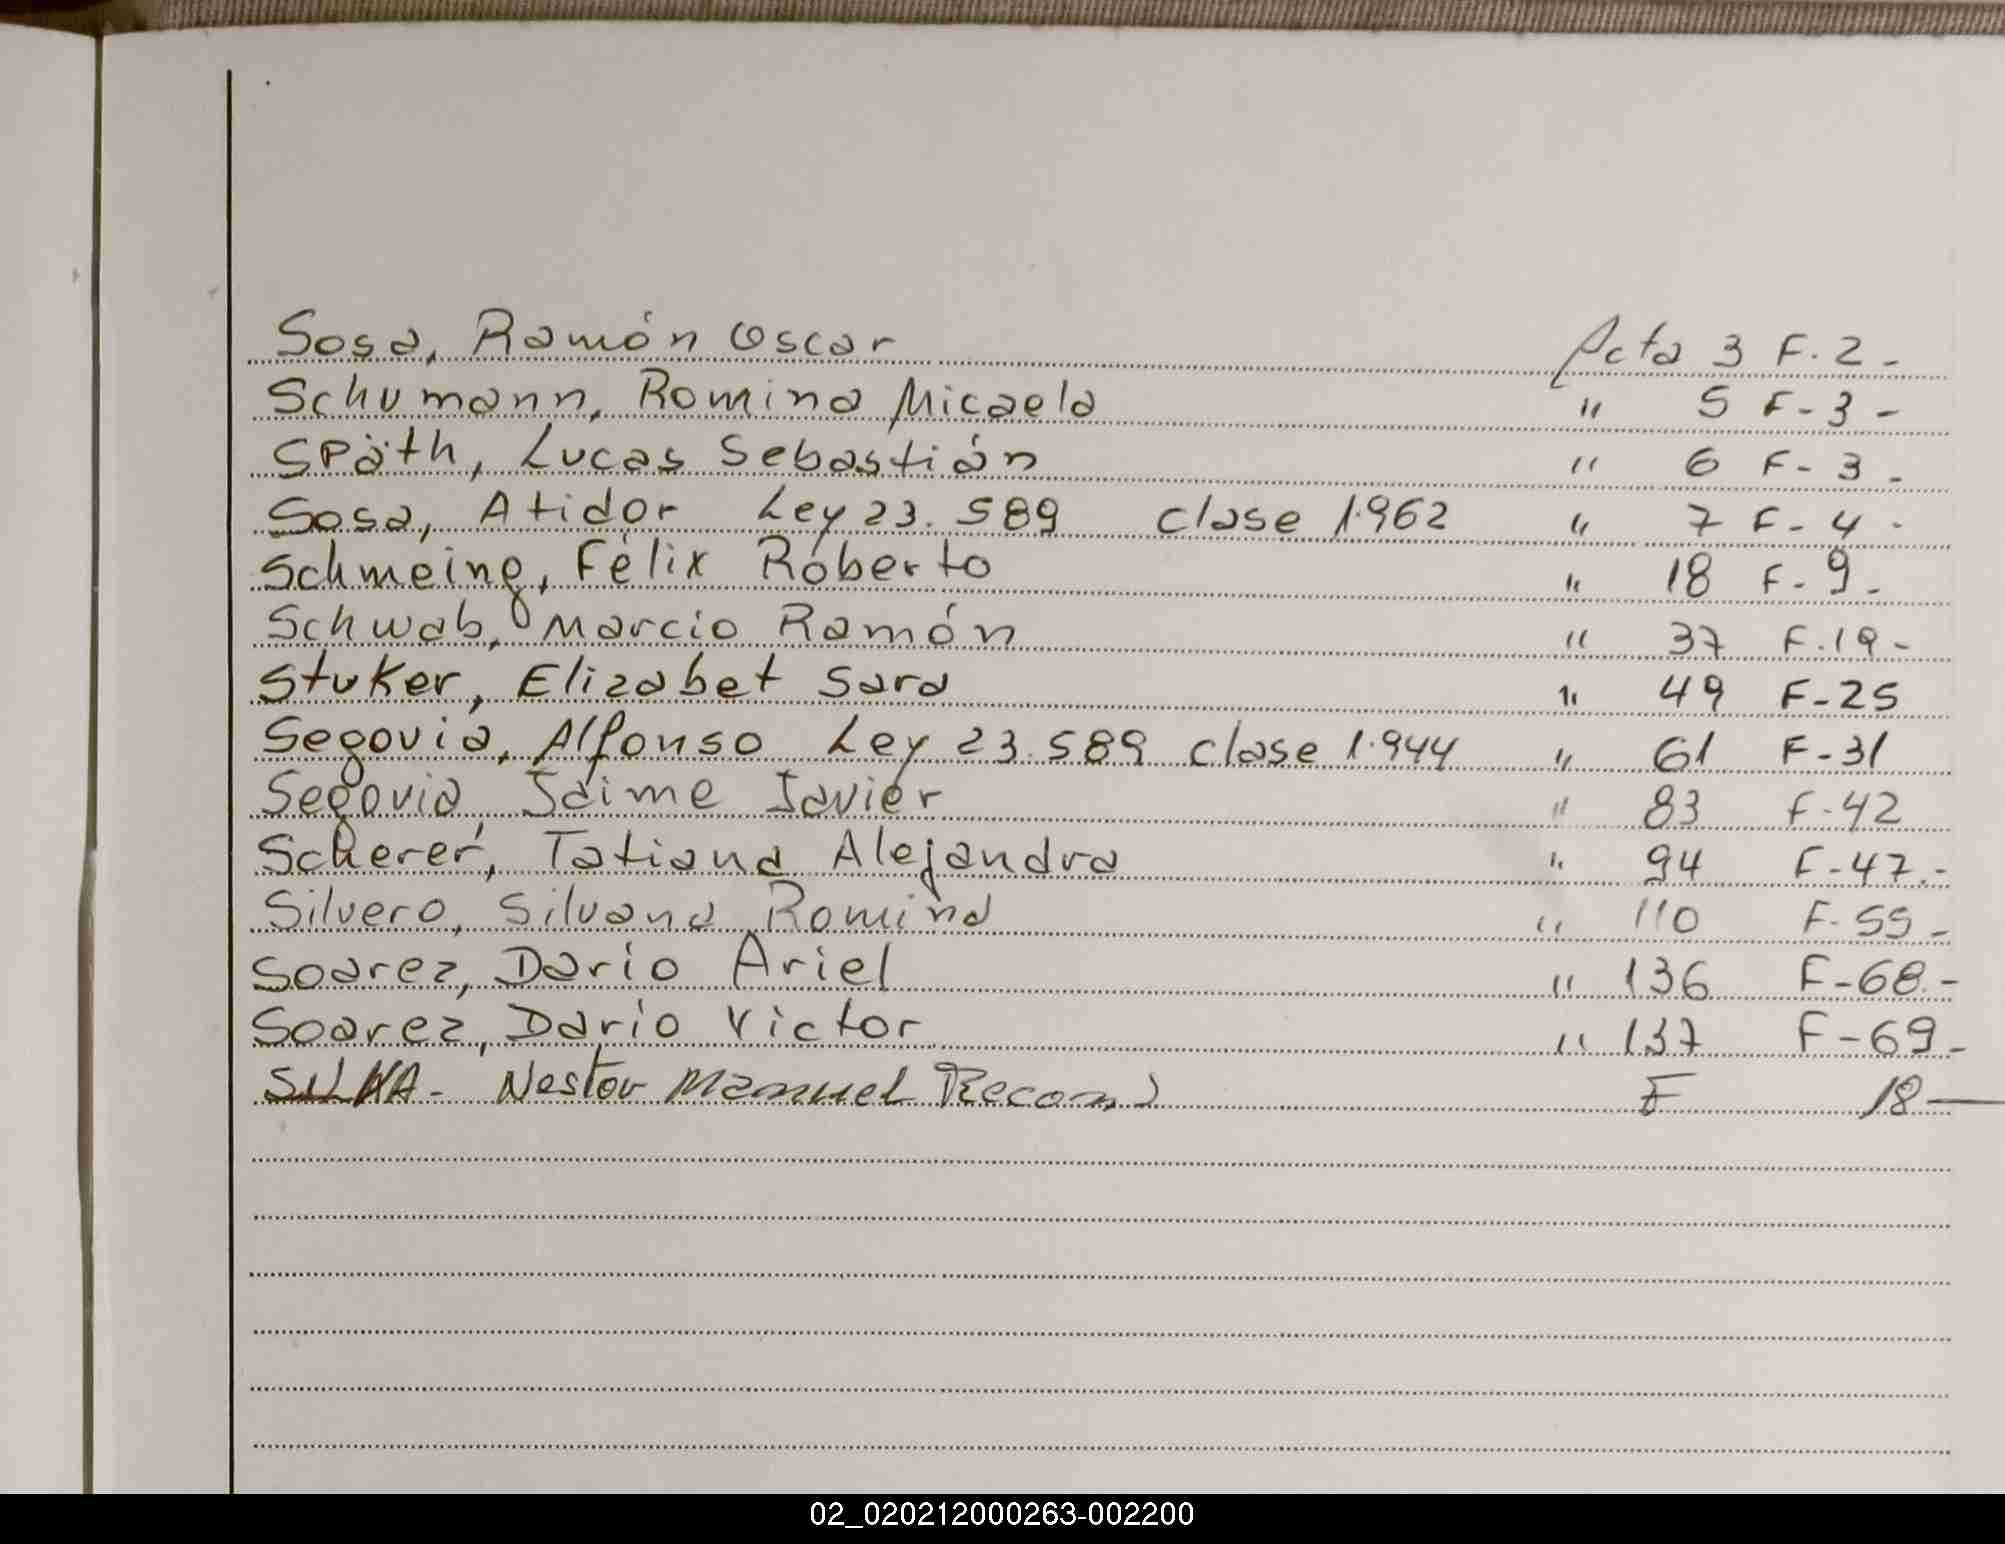 Sosa, Ramón Oscar Acta 3 F.2-
Schumann, Romina Micaela " 5 F-3-
Späth, Lucas Sebastián " 6 F-3-
Sosa, Atidor Ley 23.589 clase 1.962 " 7 F-4-
Schmeing, Félix Roberto " 18 F-9-
Schwab, Marcio Ramón " 37 F.19-
Stuker, Elizabet Sara " 49 F-25
Segovia, Alfonso Ley 23.589 clase 1.944 " 61 F-31
Segovia, Jaime Javier " 83 F-42
Scherer, Tatiana Alejandra " 94 F-47.-
Silvero, Silvana Romina " 110 F-55-
Soarez, Dario Ariel " 136 F-68.-
Soarez, Dario Victor " 137 F-69-
SILVA- Nestor Manuel F 18-
02_020212000263-002200